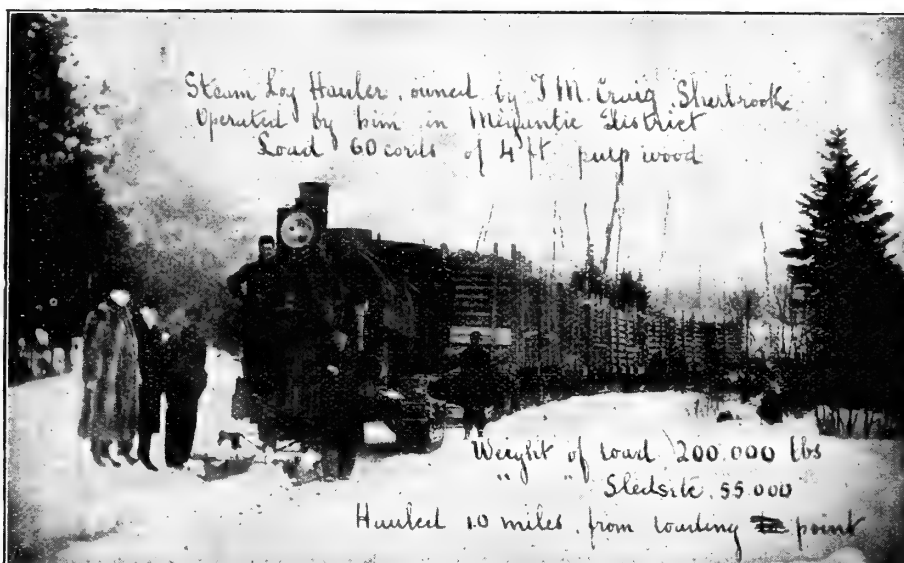 Steam Log Hauler, owned by T M. Craig Sherbrooke
Operated by him in Megantic District
Load 60 cords of 4 ft pulp wood
Weight of load 200.000 lbs
" " Sleds 55.000
Hauled 10 miles, from loading point